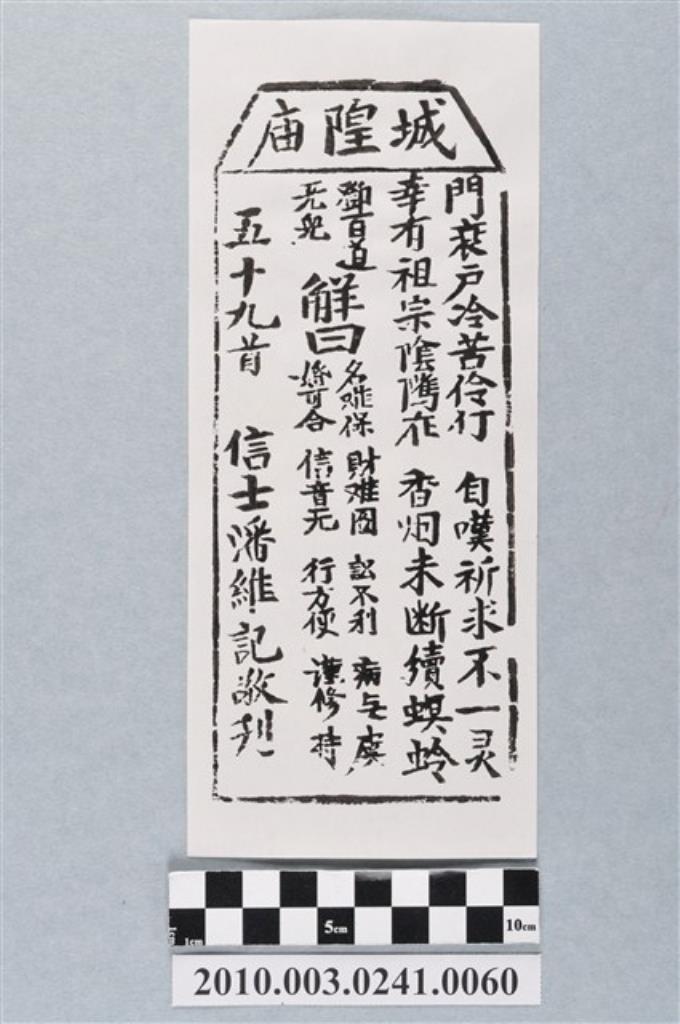 城隍庙
門衰户冷苦伶仃 自嘆祈求不一灵
幸有祖宗陰隲在 香烟未断續螟蛉
鄧百道无兒
解曰
名难保 財难图 訟不利 病无虞
婚可合 信音无 行方便 謹修持
五十九首 信士潘維記敬刋
5cm
10cm
1cm
2010.003.0241.0060